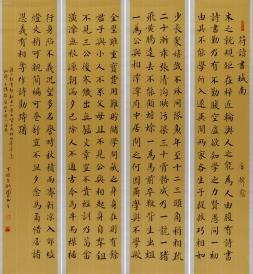 符讀書城南
唐 韓愈
木之就規矩在梓匠輪輿人之能為人由腹有詩書
詩書勤乃有不勤腹空虛欲知學之力賢愚同一初
由其不能學所入遂異閭兩家各生子提孩巧相如
少長聚嬉戲不殊同隊魚年至十二三頭角稍相疏
二十漸乖張清溝映污渠三十骨骼成乃一龍一豬
飛黃騰踏去不能顧蟾蜍一為馬前卒鞭背生蟲蛆
一為公與相潭潭府中居問之何因爾學與不學歟
金璧雖重寶費用難貯儲學問藏之身身在則有餘
君子與小人不系父母且不見公與相起身自犁鋤
不見三公後寒饑出無驢文章豈不貴經訓乃菑畬
潢潦無根源朝滿夕已除人不通古今馬牛而襟裾
行身陷不義況望多名譽時秋積雨霽新涼入郊墟
燈火稍可親簡編可卷舒豈不旦夕念為爾惜居諸
恩義有相奪作詩勸躊躇